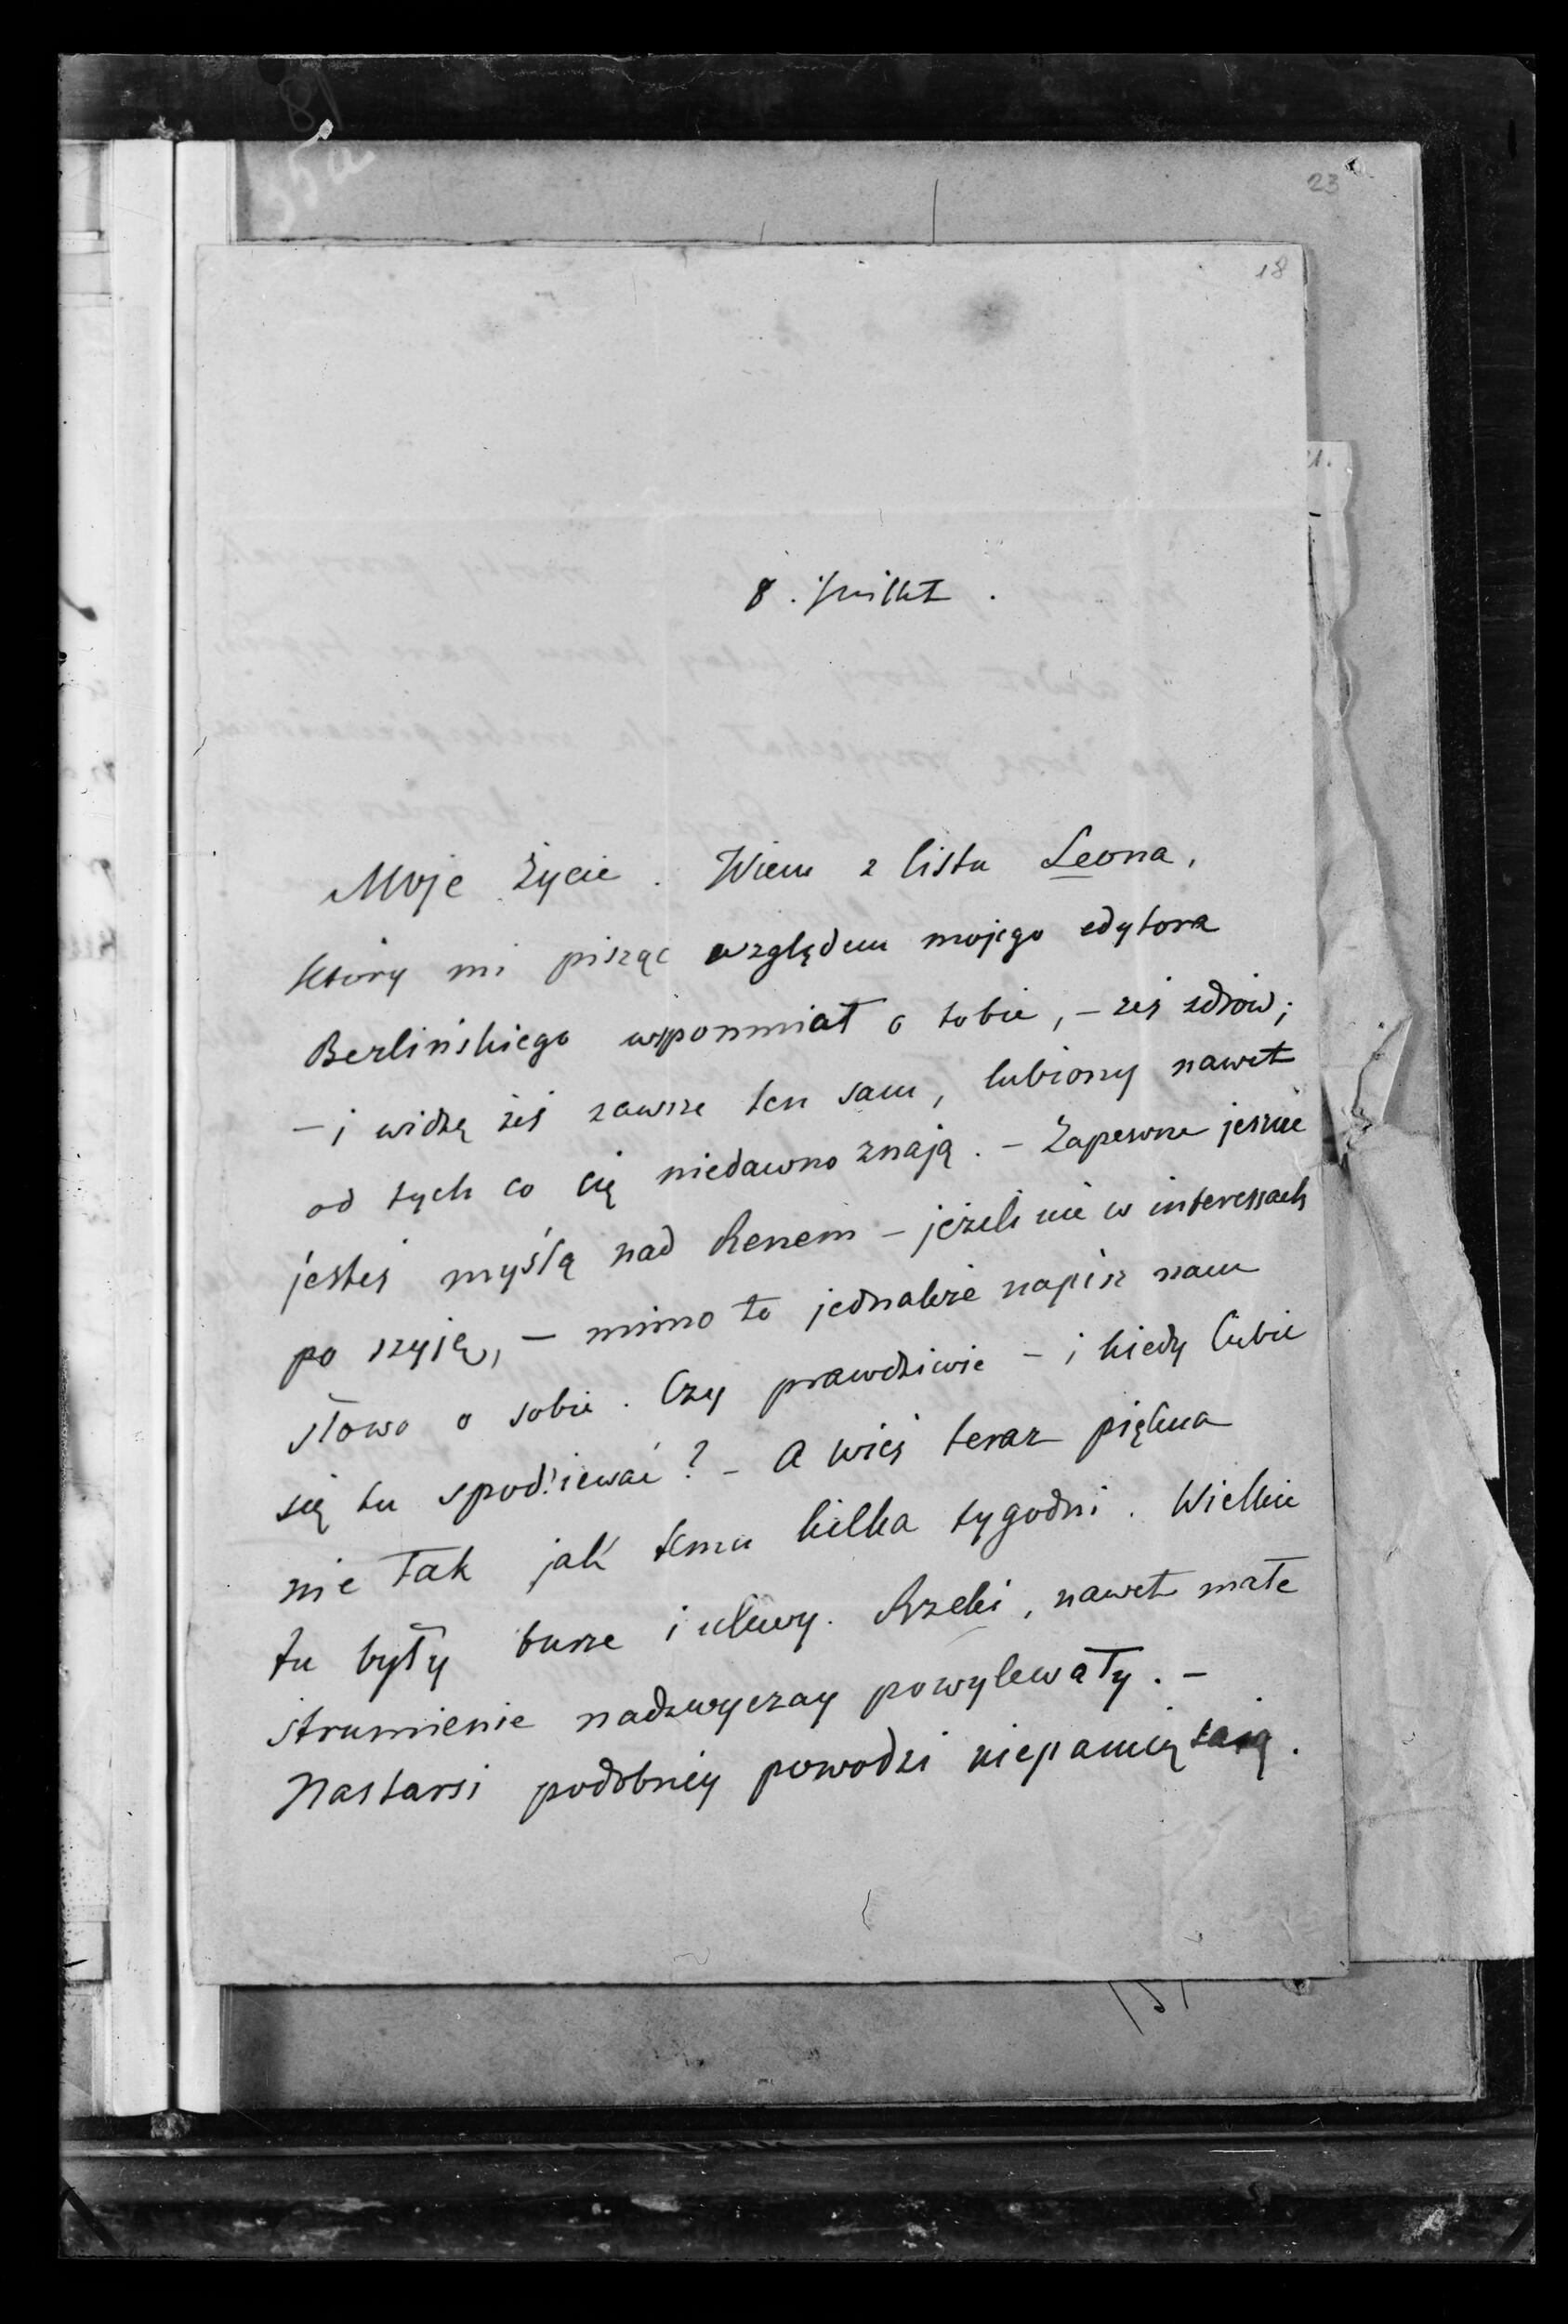 23
18
8. Juillet.
Moje Życie. Wiem z listu Leona,
który mi pisząc względem mojego edytora
Berlińskiego wspomniał o tobie, – żeś zdrów;
– i widzę żeś zawsze ten sam, lubiony nawet
od tych co cię niedawno znają. – Zapewne jeszcze
jesteś myślą nad Renem – jeżeli nie w interessach
po szyję, – mimo to jednakże napisz nam
słowo o sobie. Czy prawdziwie – i kiedy Ciebie
się tu spodziewać? – A wieś teraz piękna
nie tak jak temu kilka tygodni. Wielkie
tu były burze i ulewy. Rzeki, nawet małe
strumienie nadzwyczay powylewały. –
Nastarsi podobnéy powodzi niepamiętają.